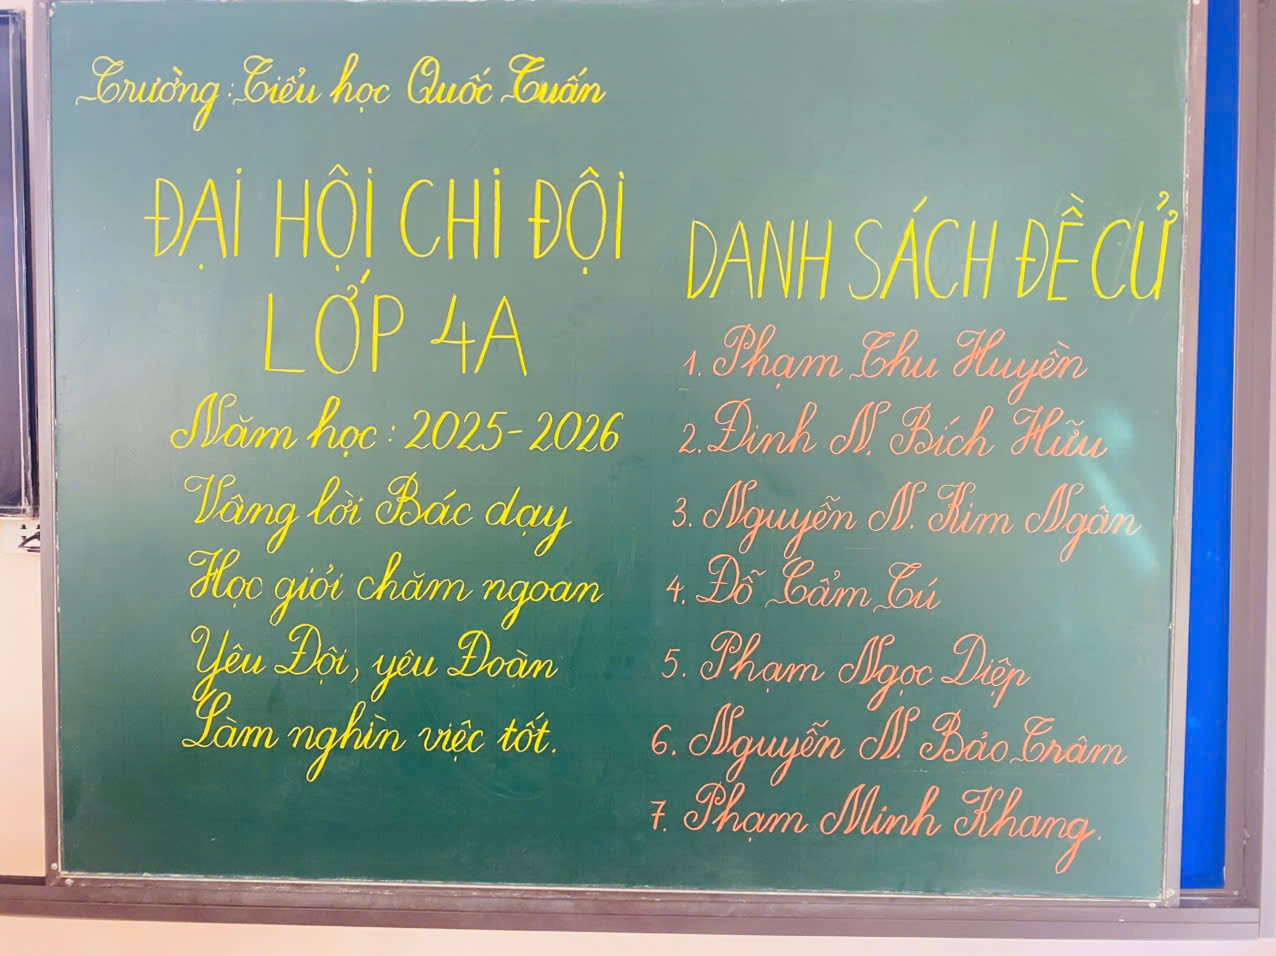 Trường: Tiểu học Quốc Tuấn
ĐẠI HỘI CHI ĐỘI
LỚP 4A
Năm học: 2025-2026
Vâng lời Bác dạy
Học giỏi chăm ngoan
Yêu Đội, yêu Đoàn
Làm nghìn việc tốt.
DANH SÁCH ĐỀ CỬ
1. Phạm Thu Huyền
2. Đinh N. Bích Hữu
3. Nguyễn N. Kim Ngân
4. Đỗ Cẩm Tú
5. Phạm Ngọc Diệp
6. Nguyễn N. Bảo Trâm
7. Phạm Minh Khang.